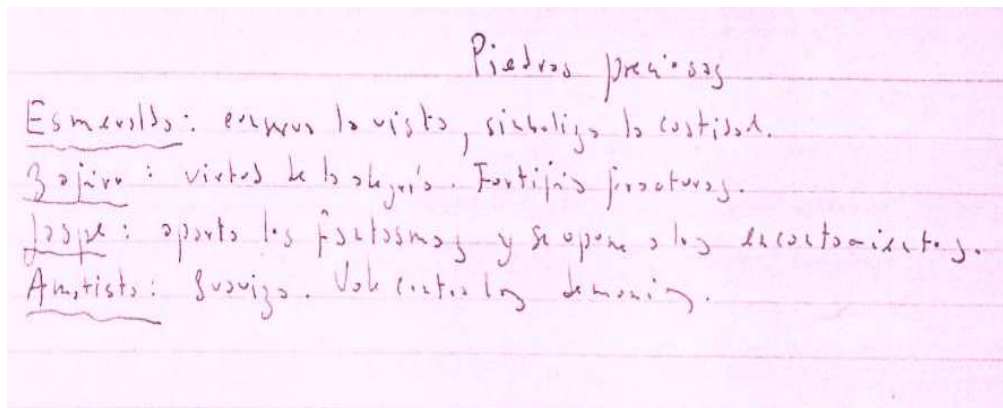 Piedras preciosas
Esmeralda: conserva la vista, simboliza la castidad.
Zafiro: virtud de la alegría. Fortifica fracturas.
Jaspe: aparta los fantasmas y se opone a los encantamientos.
Amatista: Suaviza. Vale contra los demonios.